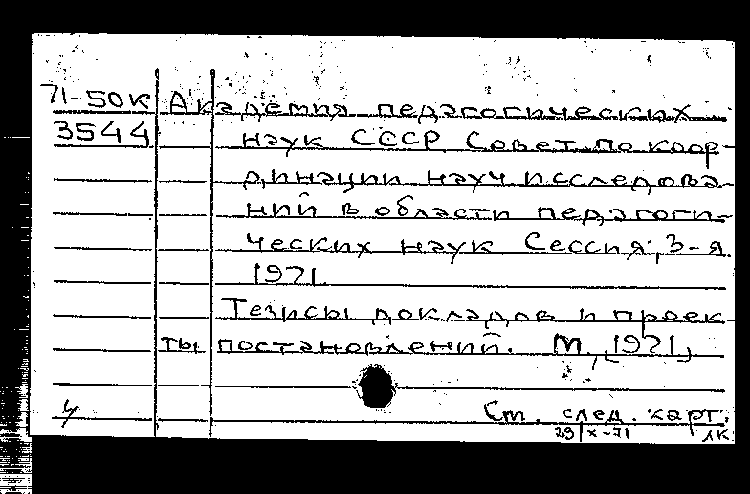 71-50к Академия педагогических
3544 наук СССР Совет по коор-
динации науч исследова-
ний в области педагоги-
ческих наук Сессия, 3-я.
1971.
Тезисы докладов и проек
ты постановлений. М, [1971]
Ст. след. карт.
29/X-71 ЛК